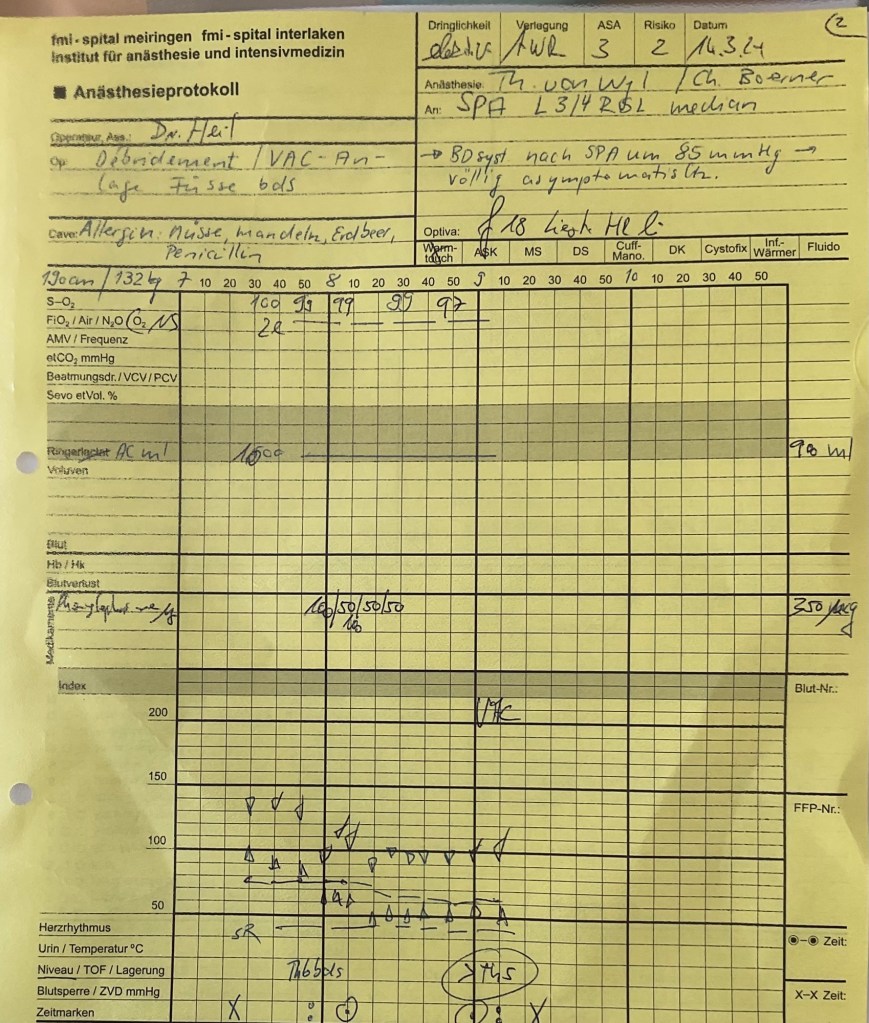 fmi-spital meiringen fmi-spital interlaken
Institut für anästhesie und intensivmedizin
■ Anästhesieprotokoll
Dringlichkeit Verlegung ASA Risiko Datum
elektiv AWR 3 2 14.3.24
2
Anästhesie: Th. von Wyl / Ch. Boerner
An: SPA L3/4 median
Operateur, Ass.: Dr. Heil
Op: Débridement / VAC-An-
lage Füsse bds
→ BDsyst nach SPA um 85 mmHg →
völlig asymptomatisch.
Cave: Allergin: Nüsse, mandeln, Erdbeer,
Penicillin
Optiva: 18 li
Warm-touch ASK MS DS Cuff-Mano. DK Cystofix Inf.-Wärmer Fluido
190cm / 132kg 7 10 20 30 40 50 8 10 20 30 40 50 9 10 20 30 40 50 10 10 20 30 40 50
S-O₂ 100 99 99 99 97
FiO₂ / Air / N₂O O₂ NS 2l
AMV / Frequenz
etCO₂ mmHg
Beatmungsdr. / VCV / PCV
Sevo etVol. %
Ringerlactat AC ml 1000 900 ml
Voluven
Blut
Hb / Hk
Blutverlust
Medikamente
100/50/50/50 350 µg
100
Index Blut-Nr.:
VAC
200
150
FFP-Nr.:
100
50
Herzrhythmus SR
Urin / Temperatur °C ◉–◉ Zeit:
Niveau / TOF / Lagerung Th6 bds > Th5
Blutsperre / ZVD mmHg X–X Zeit:
Zeitmarken X X